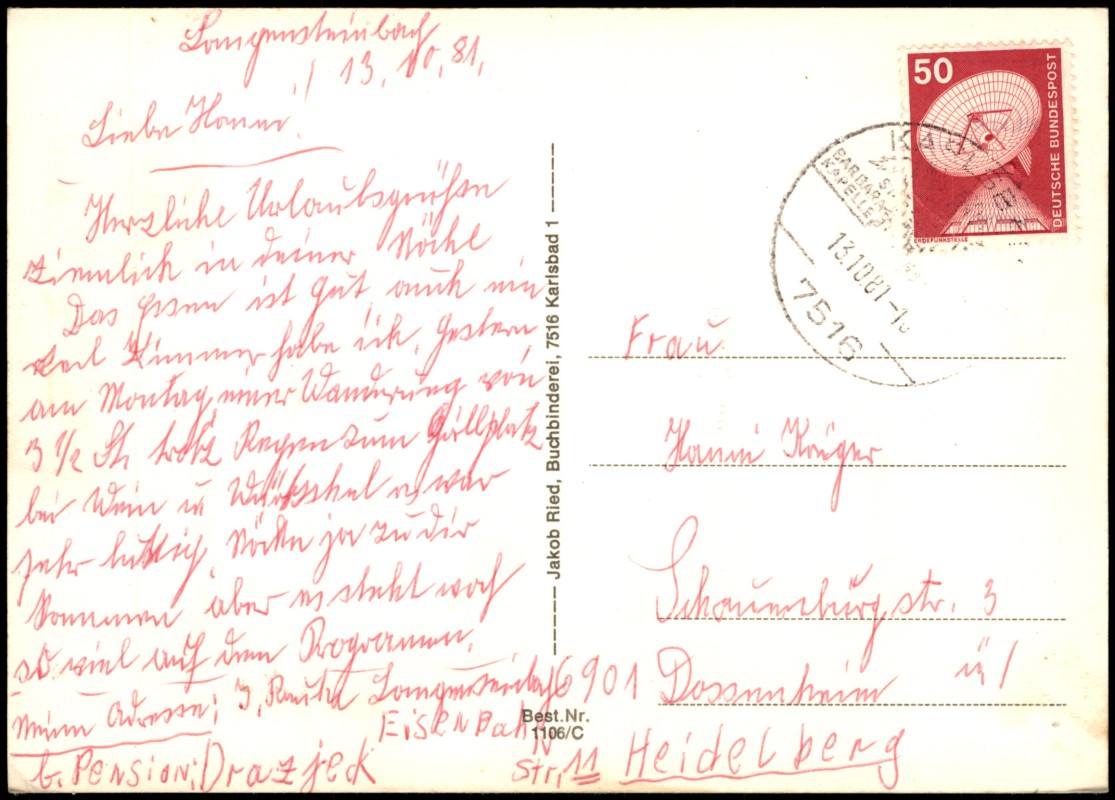 Langensteinbach
13.10.81.
Liebe Hanni!
Herzliche Urlaubsgrüße
ziemlich in deiner Nähe
Das Essen ist gut auch ein
Zimmer habe ich, gestern
am Montag einer Wanderung von
3 1/2 St. trotz Regen zum Grillplatz
bei Wein u es war
sehr lustig. ja zu dir
kommen aber es steht noch
so viel auf dem Programm.
Meine Adresse: Langensteinbach
Eisenbahn
b. Pension: Drazjeck Str. 11
Jakob Ried, Buchbinderei, 7516 Karlsbad 1
Best.Nr.
1106/C
50
DEUTSCHE BUNDESPOST
ERDEFUNKSTELLE
BARBARA
KAPELLE
13.10.81-1
7516
Frau
Hanni Krüger
Schauenburgstr. 3
6901 Dossenheim ü/
Heidelberg